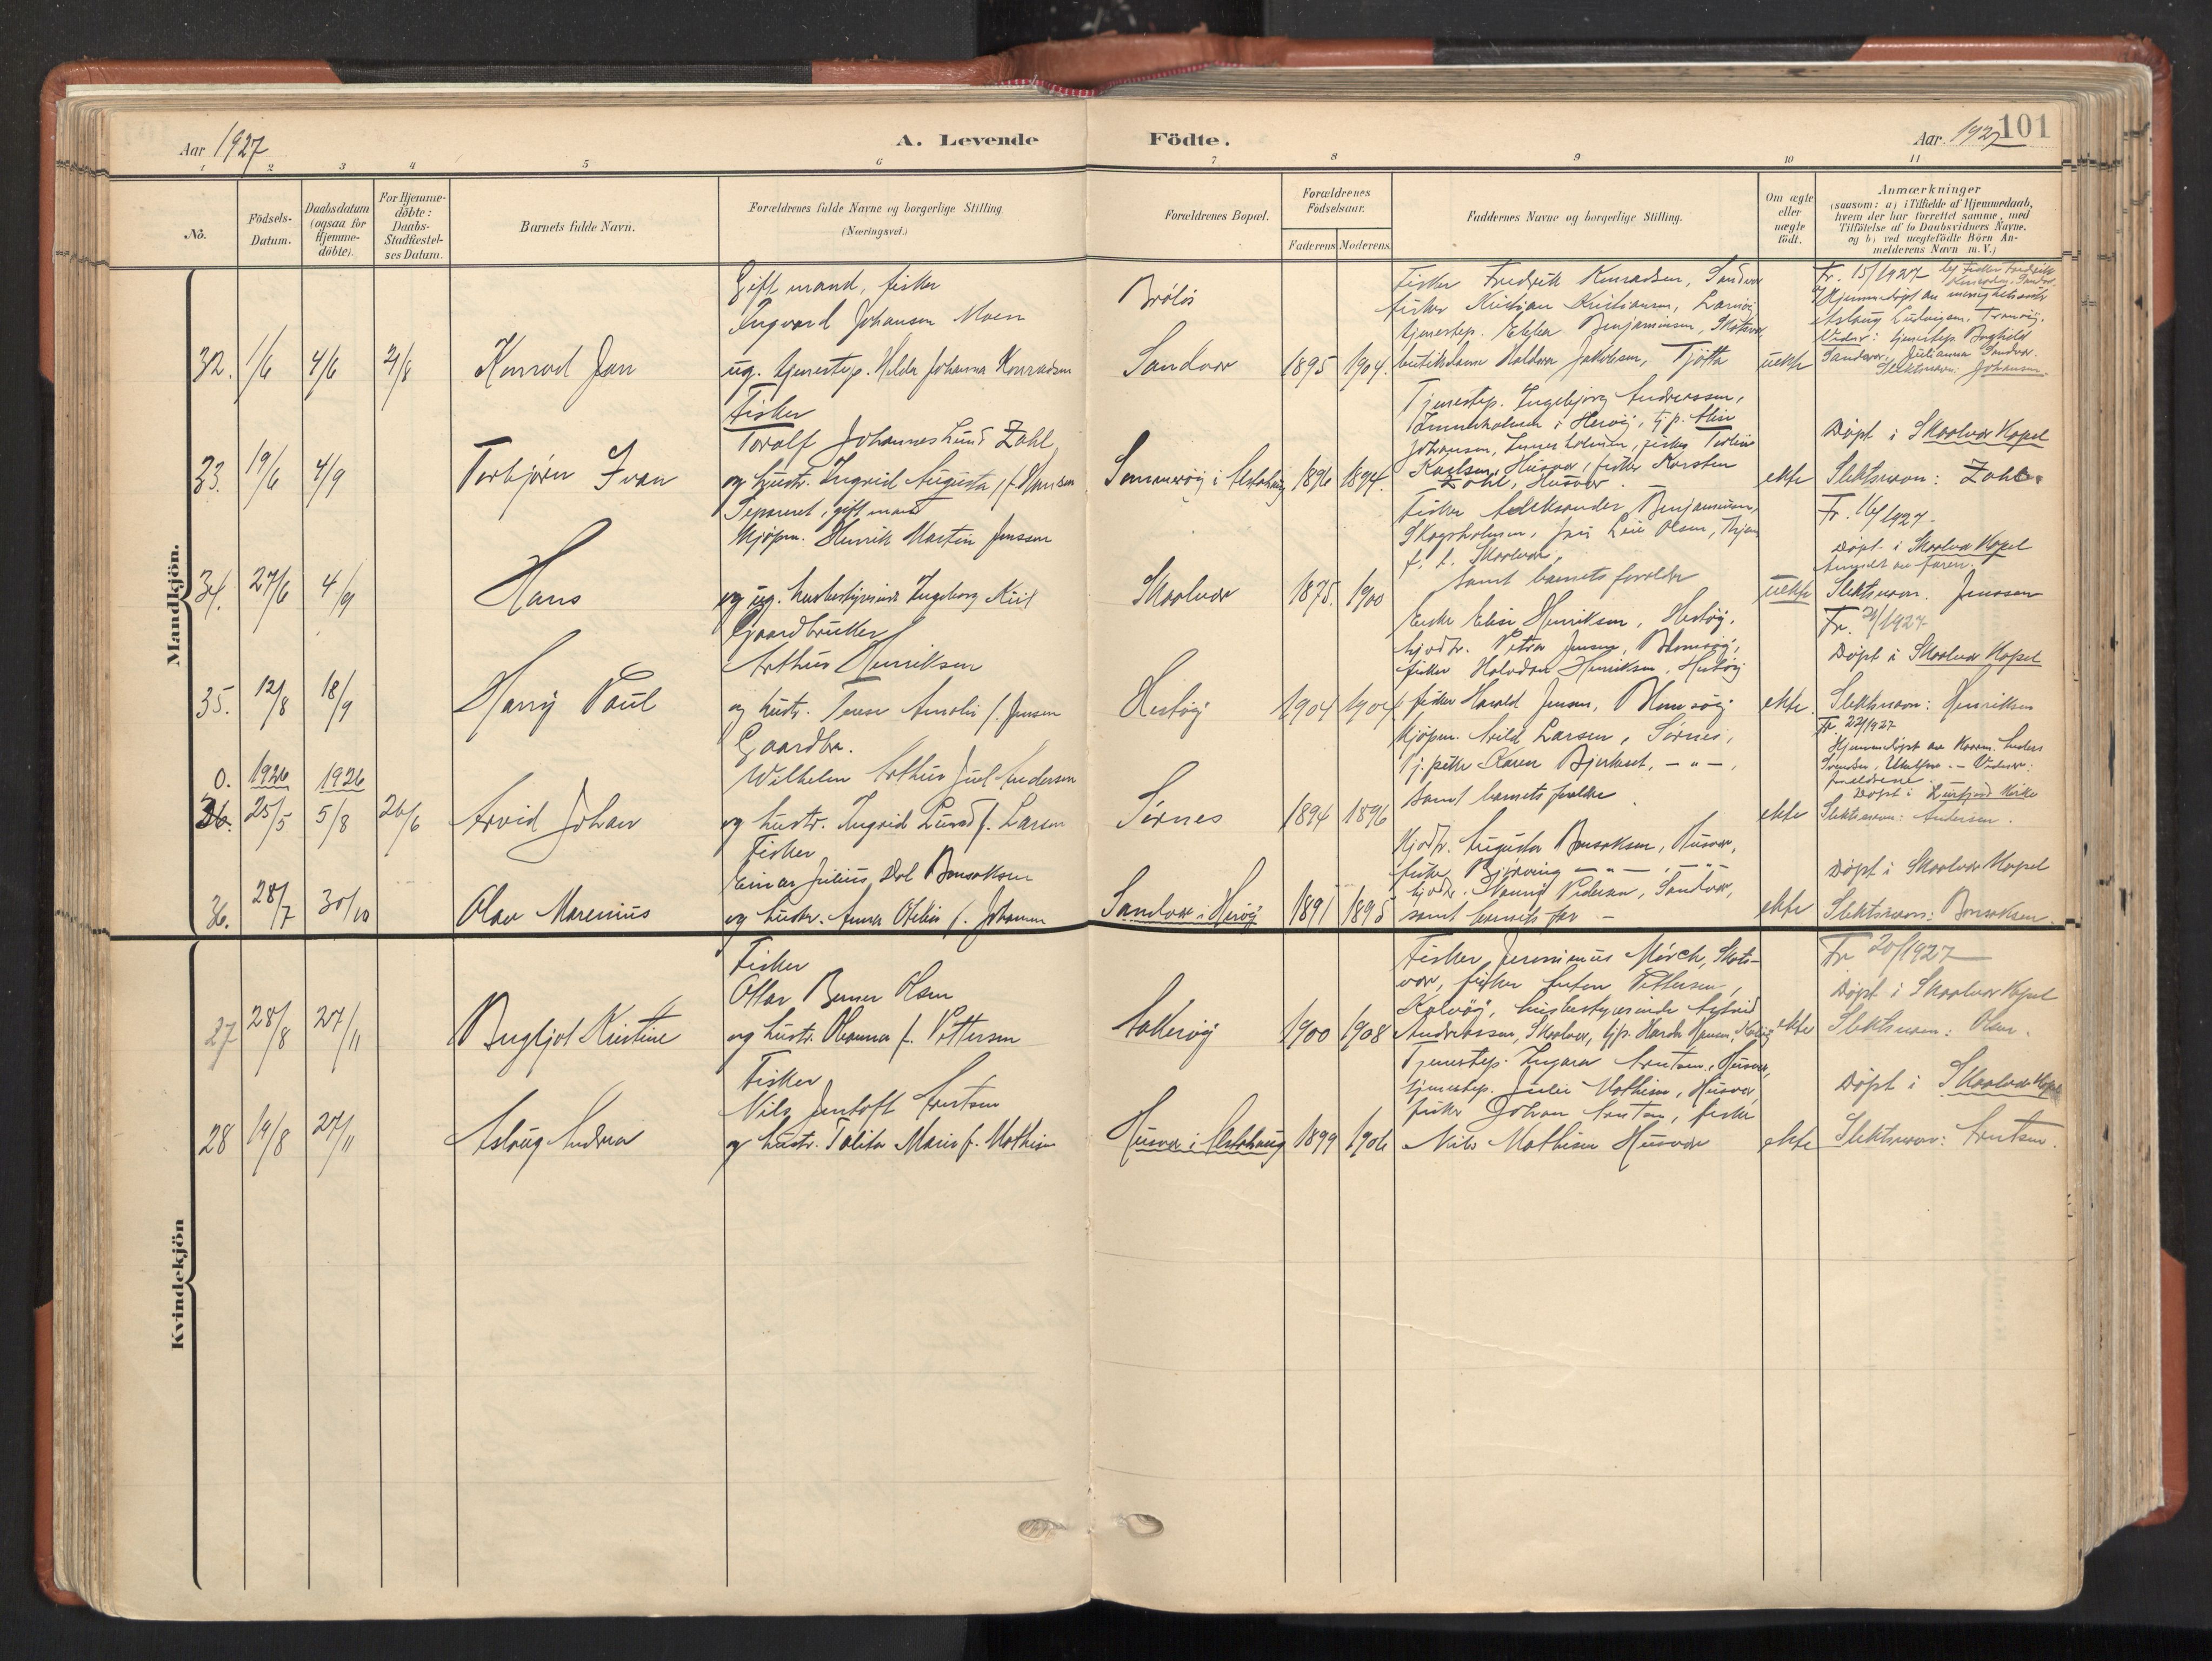 Aar 1927
A. Levende
Födte.
Aar 1927
101
1 2 3 4 5 6 7 8 9 10 11
No.
Födsels-
Datum.
Daabsdatum
(ogsaa for
Hjemme-
döbte).
For Hjemme-
döbte:
Daabs-
Stadfæstel-
ses Datum.
Barnets fulde Navn.
Forældrenes fulde Navne og borgerlige Stilling
(Næringsvei.)
Forældrenes Bopæl.
Forældrenes
Födselsaar.
Faderens Moderens
Faddernes Navne og borgerlige Stilling.
Om ægte
eller
uægte
födt.
Anmærkninger
(saasom: a) i Tilfælde af Hjemmedaab,
hvem der har forrettet samme, med
Tilföielse af to Daabsvidners Navne.
og b) ved uægtefödte Börn An-
melderens Navn m. V.)
Mandkjön.
32. 1/6 4/6
Konrad Jan
Gift mand, fisker
Ingvard Johansen Moen
ug. tjenestep. Hilda Johanna Konradsen
Brålös
Sandvær
1895 1904.
Fisker Fredrik Konradsen, Sandvær
fisker Kristian Kristiansen,
tjenestep. Benjaminsen,
Jakobsen, Tjötta
uekte
Fr. 15/1927
Slektsnavn: Johansen.
33. 19/6 4/9
Torbjörn Ivan
Fisker
Toralf Johannes Lund Zahl
og hustr. Ingrid Augusta f. Hansen
i Alstahaug
1896 1894.
Tjenestep. Ingebjörg Andreassen,
i Heröy, tj.p. Elise
Johansen, fisker
Karlsen, Husvær, fisker Karsten
Zahl, Husvær.
ekte
Döpt i Skaalvær Kapel
Slektsnavn: Zahl.
34. 27/6 4/9
Hans
Separeret, gift mand
Kjöpm. Henrik Martin Jenssen
og ug. husbestyrerinde Ingeborg Kiil
Skaalvær
1875. 1900
Fisker Aleksander Benjaminsen,
Skogsholmen, Olsen,
Skaalvær,
samt barnets forældre
uekte
Fr. 16/1927
Döpt i Skaalvær Kapel
Anmeldt av faren.
Slektsnavn. Jenssen
35. 12/8 18/9
Harry Paul
Gaardbruker
Arthur Henriksen
og hustr. Amalie f. Jensen
Hestöy
1904 1904
Enke Elise Henriksen, Hestöy,
Petra Jensen, Blomsöy,
fisker Halvdan Henriksen, Hestöy
fisker Harald Jensen, Blomsöy
ekte.
Fr. 21/1927
Döpt i Skaalvær Kapel
Slektsnavn: Henriksen
0.
36.
1926
25/5
1926
5/8 26/6
Arvid Johan
Gaardbr.
Wilhelm Arthur Juel Andersen
og hustr. Ingrid Lund f. Larsen
Sörnes
1894 1896
Kjöpm. Arild Larsen, Sörnes,
Karen Bjerknes, — " —,
samt barnets forældre
ekte
Fr 22/1927
Hjemmedöpt av Anders
Svendsen,
forældrene.
Döpt i Kirke
Slektsnavn: Andersen.
36. 28/7 30/10
Olav Marenius
Fisker
Einar Julius Dal Bonsaksen
og hustr. Anna Otelie f. Johansen
Sandvær i Heröy
1891 1895
Augusta Bonsaksen, Husvær,
fisker — " — — " —
Pedersen, Sandvær,
samt barnets far —
ekte
Döpt i Skaalvær Kapel
Slektsnavn: Bonsaksen.
Kvindekjön
27 28/8 27/11
Bergljot Kristine
Fisker
Ottar Berner Olsen
og hustr. Oleanna f. Pettersen
Aakeröy
1900 1908
Fisker Jeronimus Mörch, Skots-
vær, fisker Anton Pettersen,
husbestyrerinde Astrid
Andreassen, Skaalvær,
ekte
Fr 20/1927
Döpt i Skaalvær Kapel
Slektsnavn: Olsen.
28 14/8 27/11
Aslaug Andrea
Fisker
Nils Jentoft Arntsen
og hustr. Talita Marie f. Mathisen
Husvær i Alstahaug
1899 1906
Tjenestep. Ingara Arntsen, Husvær,
tjenestep. Julie Mathisen, Husvær,
fisker Johan Arntsen, fisker
Nils Mathisen Husvær
ekte
Döpt i Skaalvær Kapel
Slektsnavn: Arntsen.